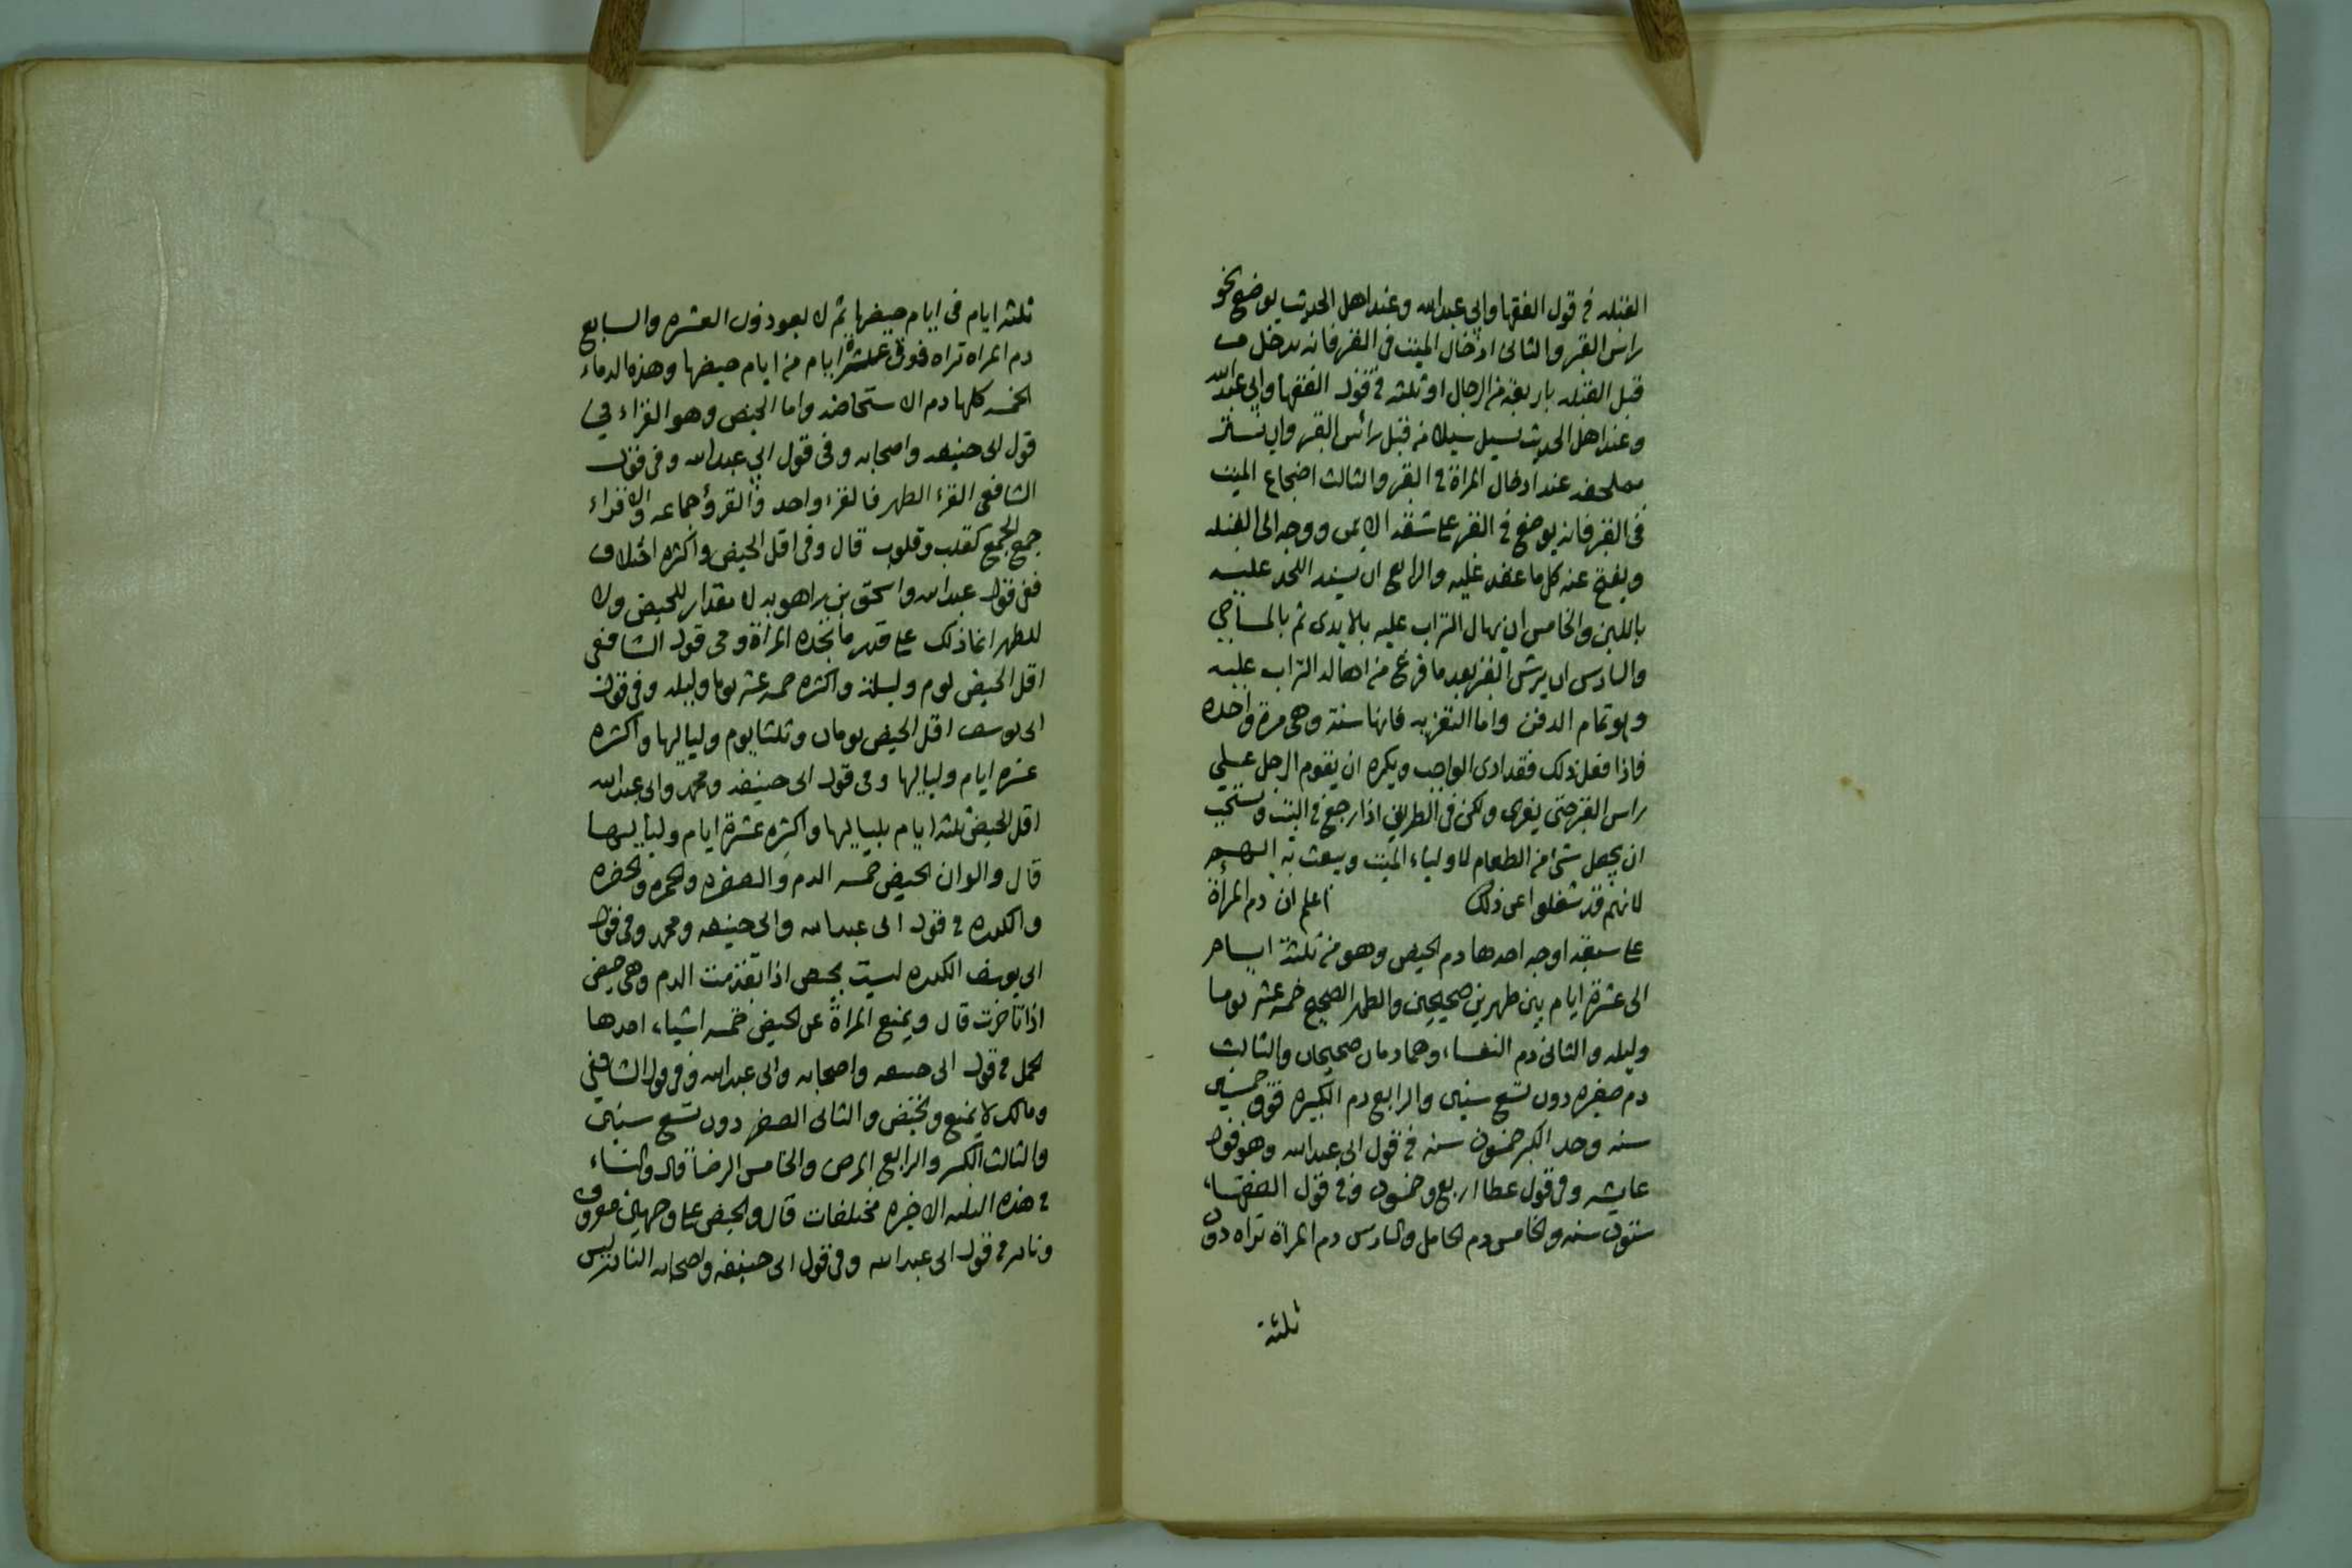 القبله في قول الفقها وابي عبدالله وعند اهل الحديث يوضع نحو
راس القبر والثانى ادخال الميت في القبر فانه يدخل من
قبل القبله باربعة من الرجال او ثلثه في قول الفقها وابي عبد الله
وعند اهل الحديث يسيل سيلا من قبل رائس القبر وان يستر
بملحفه عند ادخال المراة في القبر والثالث اضجاع الميت
فى القبر فانه يوضع في القبر على شقه الايمن ووجه الى القبله
ويفتح عنه كل ما عقد عليه والرابع ان يسند اللحد عليه
باللبن والخامس ان يهال التراب عليه بالايدى ثم بالمساحي
والسادس ان يرش القبر بعد ما فرغ من اهاله التراب عليه
وهو تمام الدفن واما التعزيه فانها سنة وهى مرة واحده
فاذا فعل ذلك فقد ادى الواجب ويكره ان يقوم الرجل على
راس القبر حتى يعزى ولكن فى الطريق اذا رجع في البيت ويستحب
ان يجعل شئ من الطعام لاولياء الميت ويبعث به اليهم
لانهم قد شغلوا عن ذلك اعلم ان دم المرأة
على سبعة اوجه احدها دم الحيض وهو من ثلثة ايام
الى عشرة ايام بين طهرين صحيحين والطهر الصحيح خمسه عشر يوما
وليله والثانى دم النفساء وهما دمان صحيحان والثالث
دم صغيره دون تسع سنين والرابع دم الكبيره فوق خمسين
سنه وحد الكبر خمسون سنه في قول ابى عبدالله وهو قول
عايشه وفى قول عطا اربع وخمسون وفي قول الفقهاء
ستون سنه والخامس دم الحامل والسادس دم المرأة تراه دون
ثلثة
ثلثه ايام فى ايام حيضها ثم لا يعود دون العشره والسابع
دم المراه تراه فوق عشرة ايام من ايام حيضها وهذه الدماء
الخمسه كلها دم الاستحاضه واما الحيض وهو القراء في
قول ابى حنيفه واصحابه وفى قول ابي عبدالله وفى قول
الشافعى القرء الطهر فالقرء واحد والقرؤ جماعه والاقراء
جمع الجمع كقلب وقلوب قال وفى اقل الحيض واكثره اختلاف
ففى قول عبدالله واسحق بن راهويه لا مقدار للحيض ولا
للطهر انما ذلك على قدر ما تجده المراة وفى قول الشافعى
اقل الحيض يوم وليلة واكثره خمسه عشر يوما وليله وفى قول
ابى يوسف اقل الحيض يومان وثلثا يوم ولياليها واكثره
عشره ايام ولياليها وفى قول ابى حنيفه ومحمد وابى عبدالله
اقل الحيض ثلثه ايام بلياليها واكثره عشرة ايام ولياليها
قال والوان الحيض خمسه الدم والصفره والحمره والخضره
والكدره في قول ابى عبدالله وابى حنيفه ومحمد وفى قول
ابى يوسف الكدره ليست بحيض اذا تقدمت الدم وهى حيض
اذا تاخرت قال ويمنع المراة عن الحيض خمسه اشياء احدها
الحمل في قول ابى حنيفه واصحابه وابى عبدالله وفى قول الشافعي
ومالك لا يمنع وتحيض والثانى الصغر دون تسع سنين
والثالث الكبر والرابع المرض والخامس الرضاع قال والنساء
في هذه الثلثه الاخيره مختلفات قال والحيض على وجهين معروف
ونادر في قول ابى عبدالله وفى قول ابى حنيفه واصحابه النادر ليس